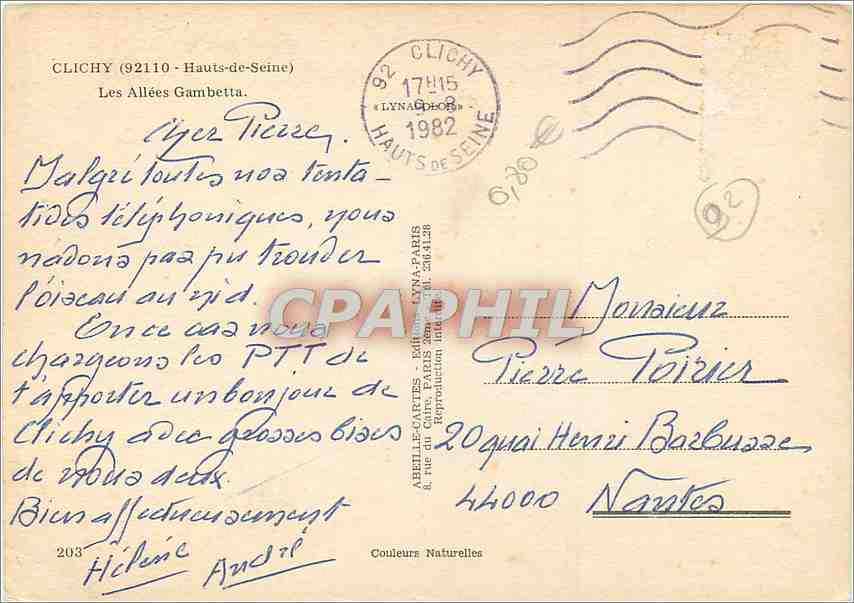 CLICHY (92110 - Hauts-de-Seine)
Les Allées Gambetta.
92 CLICHY
17H15
9-8
1982
HAUTS DE SEINE
« LYNACOLOR »
6,80 €
92
Cher Pierre,
Malgré toutes nos tenta-
tives téléphoniques, nous
n'avons pas pu trouver
l'oiseau au nid.
En ce cas nous
chargeons les PTT de
t'apporter un bonjour de
Clichy avec grosses bises
de nous deux.
Bien affectueusement
Hélène André
203
ABEILLE-CARTES - Editions LYNA-PARIS
8, rue du Caire, PARIS 2ème - Tél. 236.41.28
Reproduction interdite
CPAPHIL
Monsieur
Pierre Poirier
20 quai Henri Barbusse
44000 Nantes
Couleurs Naturelles